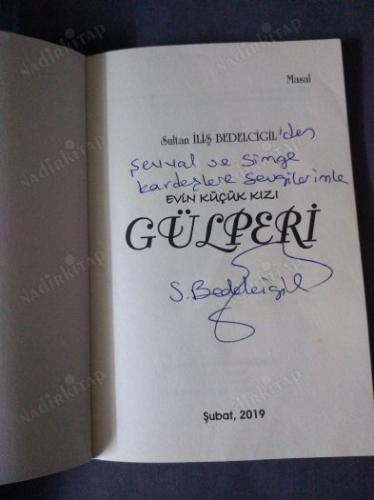 Masal
Sultan İLİŞ BEDELCİGİL'den
Şevval ve Simge
kardeşlere sevgilerimle
EVİN KÜÇÜK KIZI
GÜLPERİ
S.Bedelcigil
Şubat, 2019
NADİRKİTAP